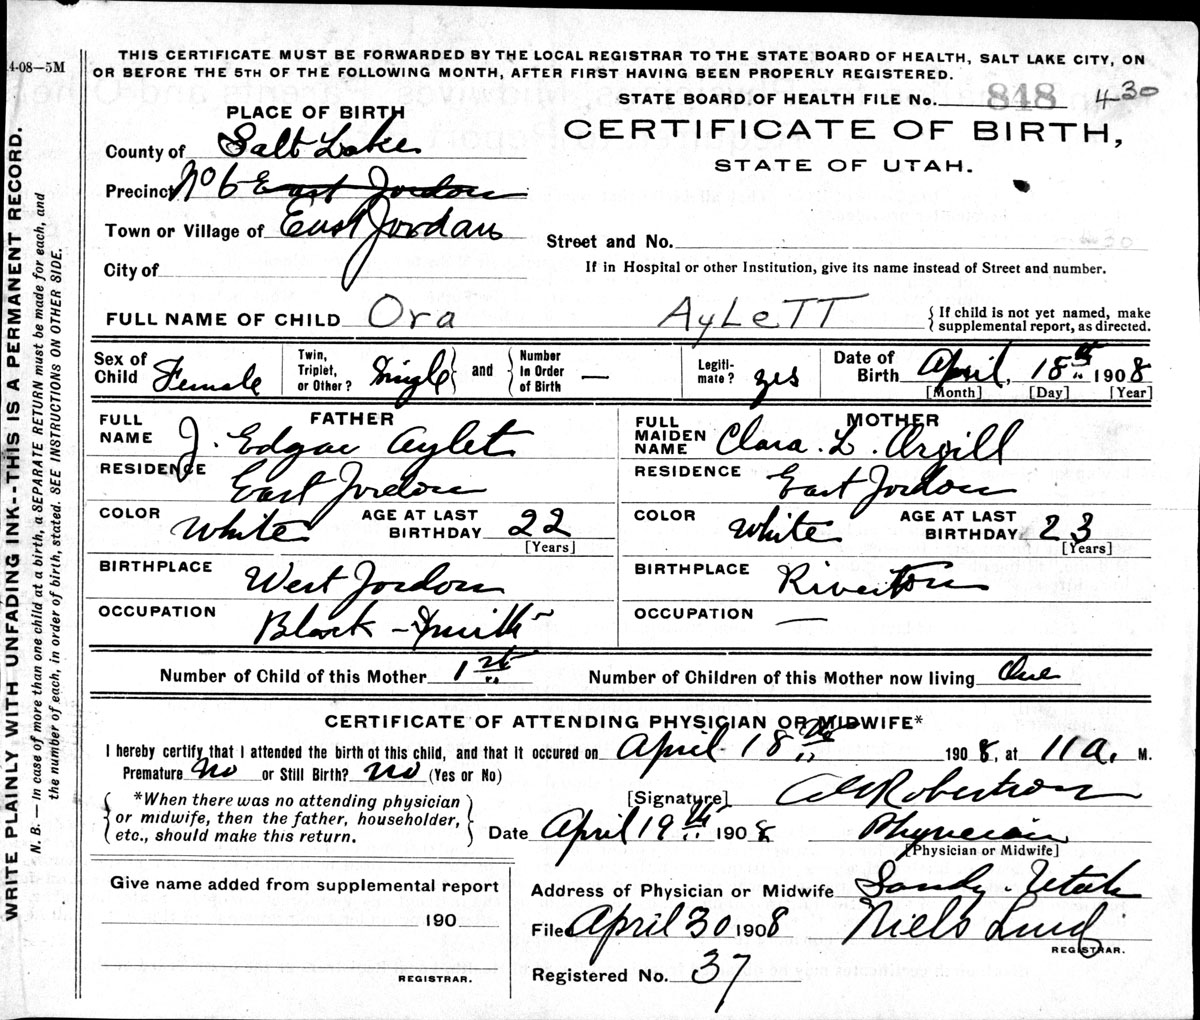 4-08—5M
THIS CERTIFICATE MUST BE FORWARDED BY THE LOCAL REGISTRAR TO THE STATE BOARD OF HEALTH, SALT LAKE CITY, ON
OR BEFORE THE 5TH OF THE FOLLOWING MONTH, AFTER FIRST HAVING BEEN PROPERLY REGISTERED.
STATE BOARD OF HEALTH FILE No. 848 4-30
PLACE OF BIRTH
CERTIFICATE OF BIRTH,
STATE OF UTAH.
County of Salt Lake
Precinct No 6 East Jordon
Town or Village of East Jordan
Street and No.
City of
If in Hospital or other Institution, give its name instead of Street and number.
FULL NAME OF CHILD Ora AyLeTT
If child is not yet named, make
supplemental report, as directed.
Sex of Child Female
Twin, Triplet, or Other? Single and Number In Order of Birth —
Legiti-mate? yes
Date of Birth April, 18th 1908
[Month] [Day] [Year]
FATHER
FULL NAME J. Edgar Aylet
RESIDENCE East Jordon
COLOR White AGE AT LAST BIRTHDAY 22
[Years]
BIRTHPLACE West Jordon
OCCUPATION Black-Smith
MOTHER
FULL MAIDEN NAME Clara. L. Argill
RESIDENCE East Jordon
COLOR White AGE AT LAST BIRTHDAY 23
[Years]
BIRTHPLACE Riverton
OCCUPATION —
Number of Child of this Mother 1st Number of Children of this Mother now living One
CERTIFICATE OF ATTENDING PHYSICIAN OR MIDWIFE*
I hereby certify that I attended the birth of this child, and that it occured on April 18th 1908, at 11 a. M.
Premature No or Still Birth? No (Yes or No)
*When there was no attending physician
or midwife, then the father, householder,
etc., should make this return.
[Signature] Robertson
Date April 19th 1908 Physician
[Physician or Midwife]
Give name added from supplemental report
190
REGISTRAR.
Address of Physician or Midwife Sandy Utah
Filed April 30 1908 Niels Lind
REGISTRAR.
Registered No. 37
WRITE PLAINLY WITH UNFADING INK--THIS IS A PERMANENT RECORD.
N. B. — In case of more than one child at a birth, a SEPARATE RETURN must be made for each, and
the number of each, in order of birth, stated. SEE INSTRUCTIONS ON OTHER SIDE.